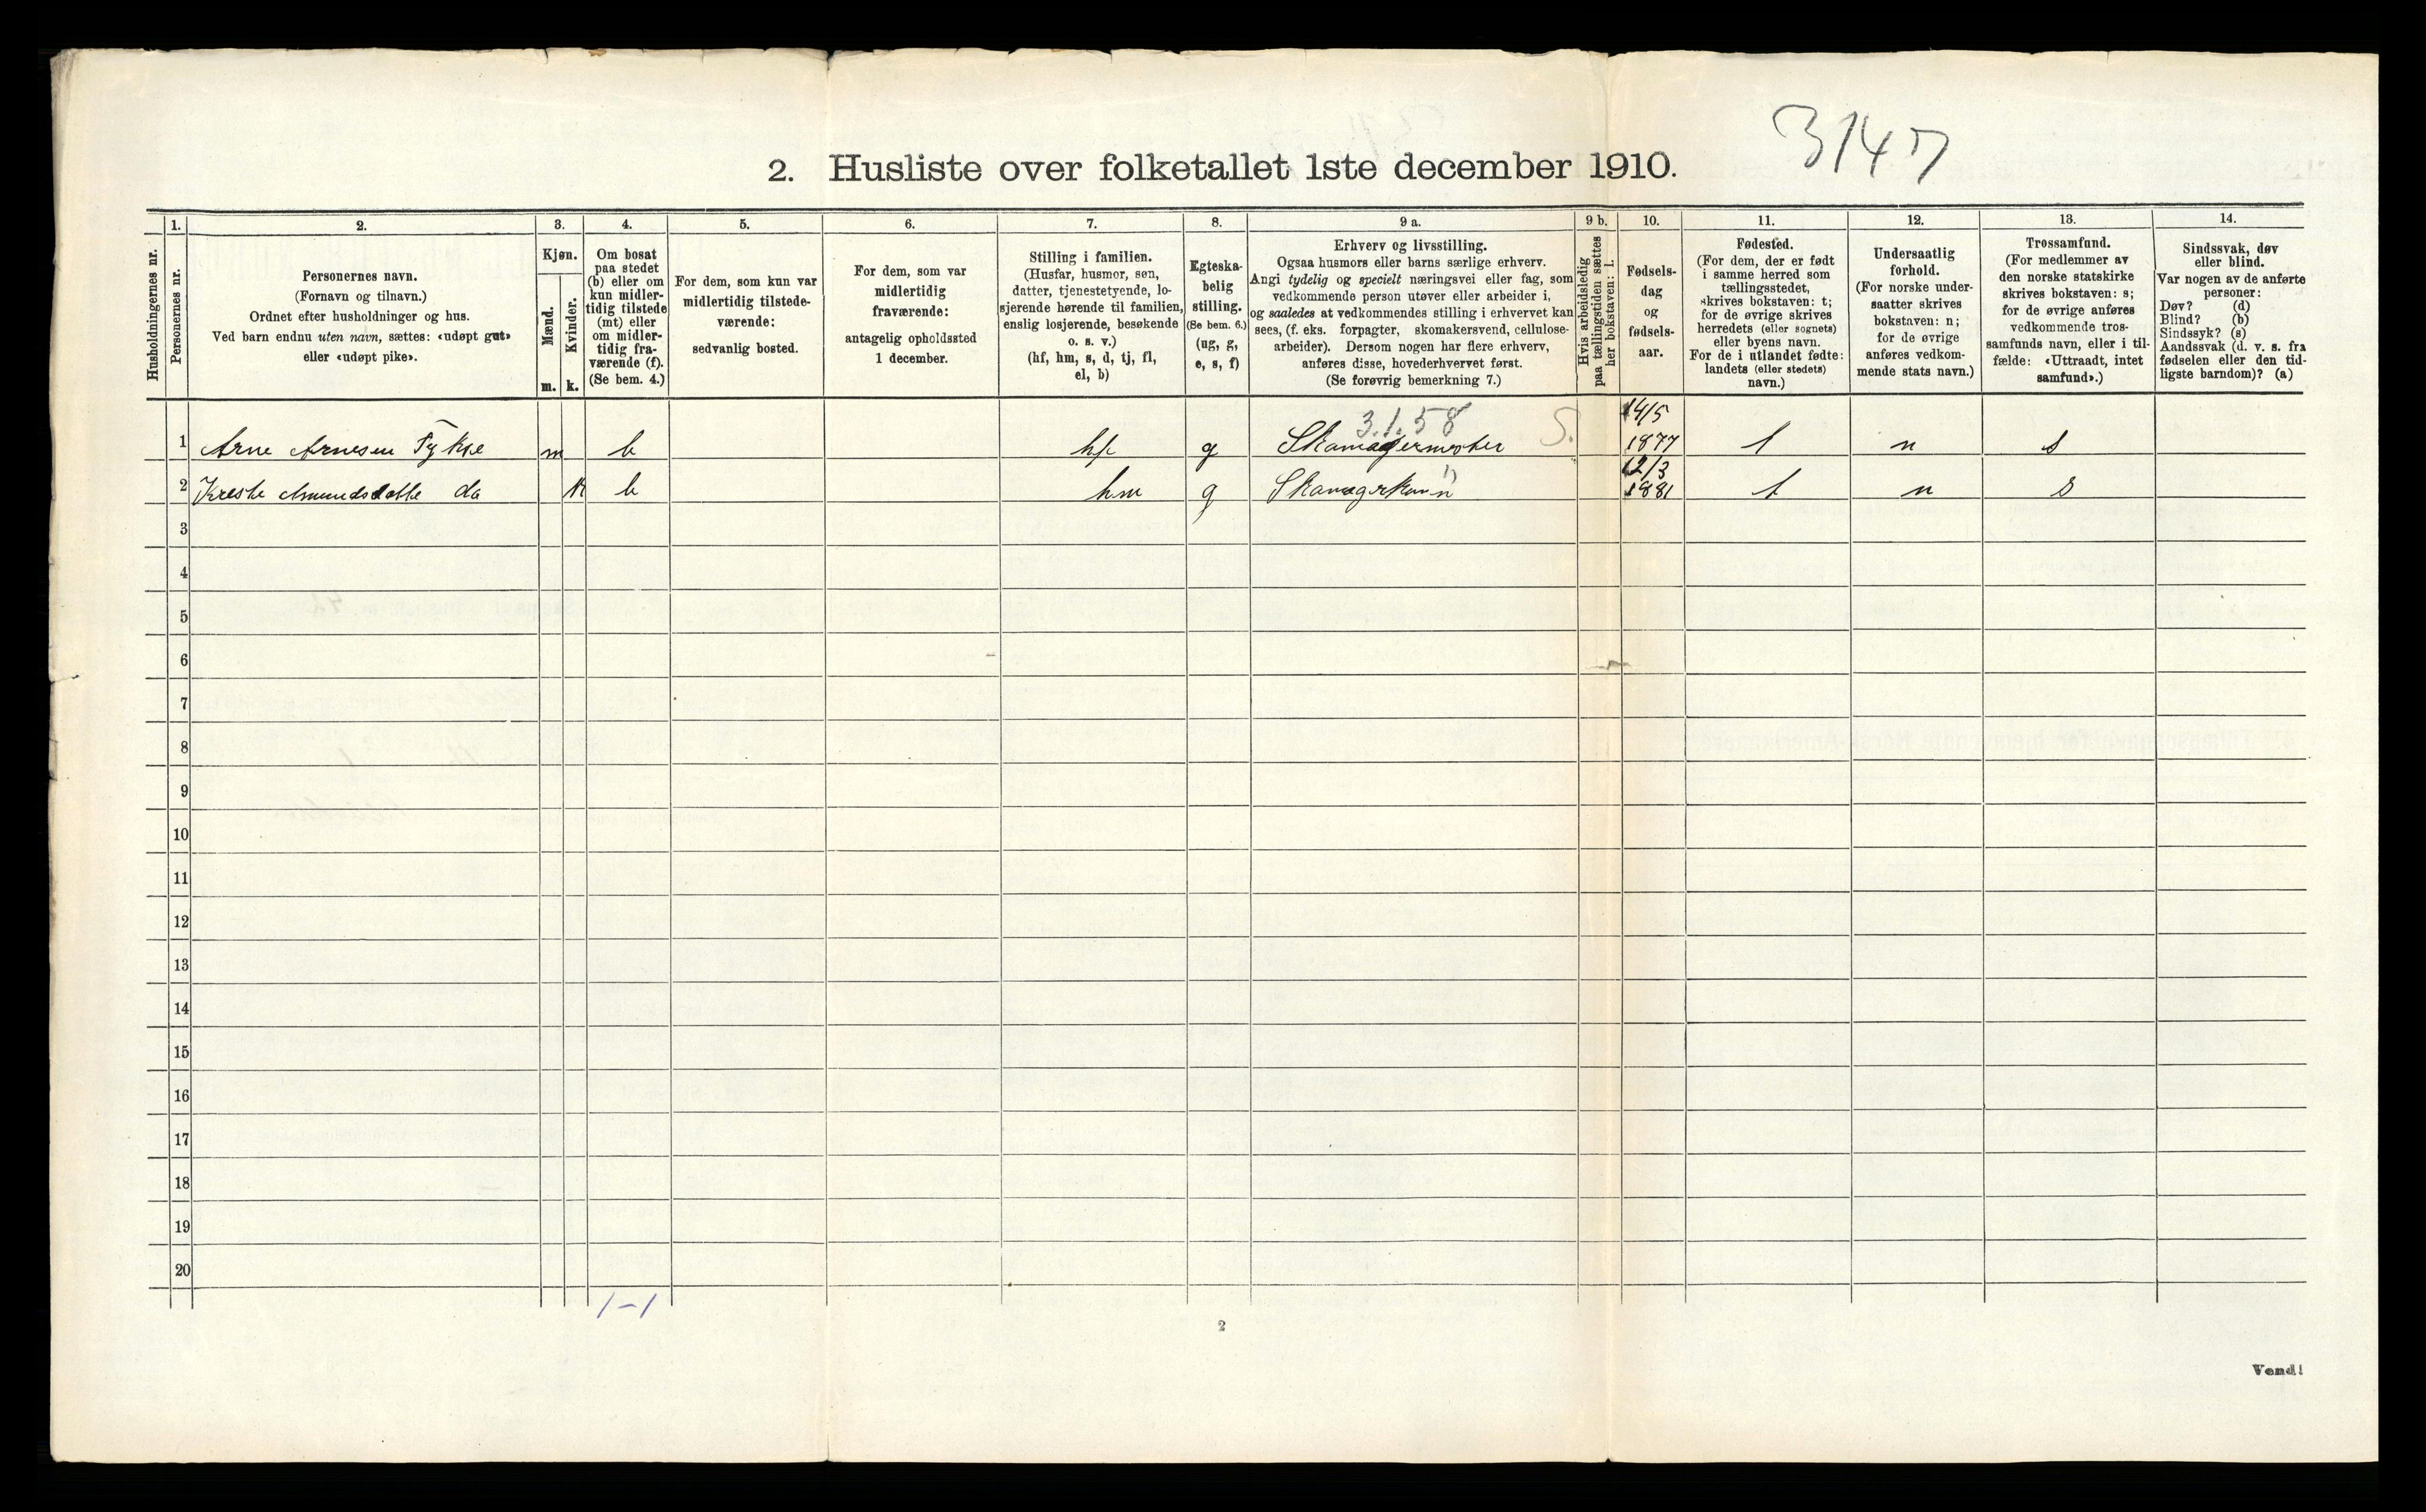 3147
2. Husliste over folketallet 1ste december 1910.
1. 2. 3. 4. 5. 6. 7. 8. 9 a. 9 b. 10. 11. 12. 13. 14.
Husholdningernes nr.
Personernes nr.
Personernes navn.
(Fornavn og tilnavn.)
Ordnet efter husholdninger og hus.
Ved barn endnu uten navn, sættes: «udøpt gut»
eller «udøpt pike».
Kjøn.
Mænd.
Kvinder.
m. k.
Om bosat
paa stedet
(b) eller om
kun midler-
tidig tilstede
(mt) eller
om midler-
tidig fra-
værende (f).
(Se bem. 4.)
For dem, som kun var
midlertidig tilstede-
værende:
sedvanlig bosted.
For dem, som var
midlertidig
fraværende:
antagelig opholdssted
1 december.
Stilling i familien.
(Husfar, husmor, søn,
datter, tjenestetyende, lo-
sjerende hørende til familien,
enslig losjerende, besøkende
o. s. v.)
(hf, hm, s, d, tj, fl,
el, b)
Egteska-
belig
stilling.
(Se bem. 6.)
(ug, g,
e, s, f)
Erhverv og livsstilling.
Ogsaa husmors eller barns særlige erhverv.
Angi tydelig og specielt næringsvei eller fag, som
vedkommende person utøver eller arbeider i,
og saaledes at vedkommendes stilling i erhvervet kan
sees, (f. eks. forpagter, skomakersvend, cellulose-
arbeider). Dersom nogen har flere erhverv,
anføres disse, hovederhvervet først.
(Se forøvrig bemerkning 7.)
Hvis arbeidsledig
paa tællingstiden sættes
her bokstaven: l.
Fødsels-
dag
og
fødsels-
aar.
Fødested.
(For dem, der er født
i samme herred som
tællingsstedet,
skrives bokstaven: t;
for de øvrige skrives
herredets (eller sognets)
eller byens navn.
For de i utlandet fødte:
landets (eller stedets)
navn.)
Undersaatlig
forhold.
(For norske under-
saatter skrives
bokstaven: n;
for de øvrige
anføres vedkom-
mende stats navn.)
Trossamfund.
(For medlemmer av
den norske statskirke
skrives bokstaven: s;
for de øvrige anføres
vedkommende tros-
samfunds navn, eller i til-
fælde: «Uttraadt, intet
samfund».)
Sindssvak, døv
eller blind.
Var nogen av de anførte
personer:
Døv? (d)
Blind? (b)
Sindssyk? (s)
Aandssvak (d. v. s. fra
fødselen eller den tid-
ligste barndom)? (a)
3.1.58 S. 14/5
1 Arne Arnesen Tykse m b hf g 1877 t n s
12/3
2 Amundsdotte do k b hm g 1) 1881 t n s
3
4
5
6
7
8
9
10
11
12
13
14
15
16
17
18
19
20
1-1
2
Vend!